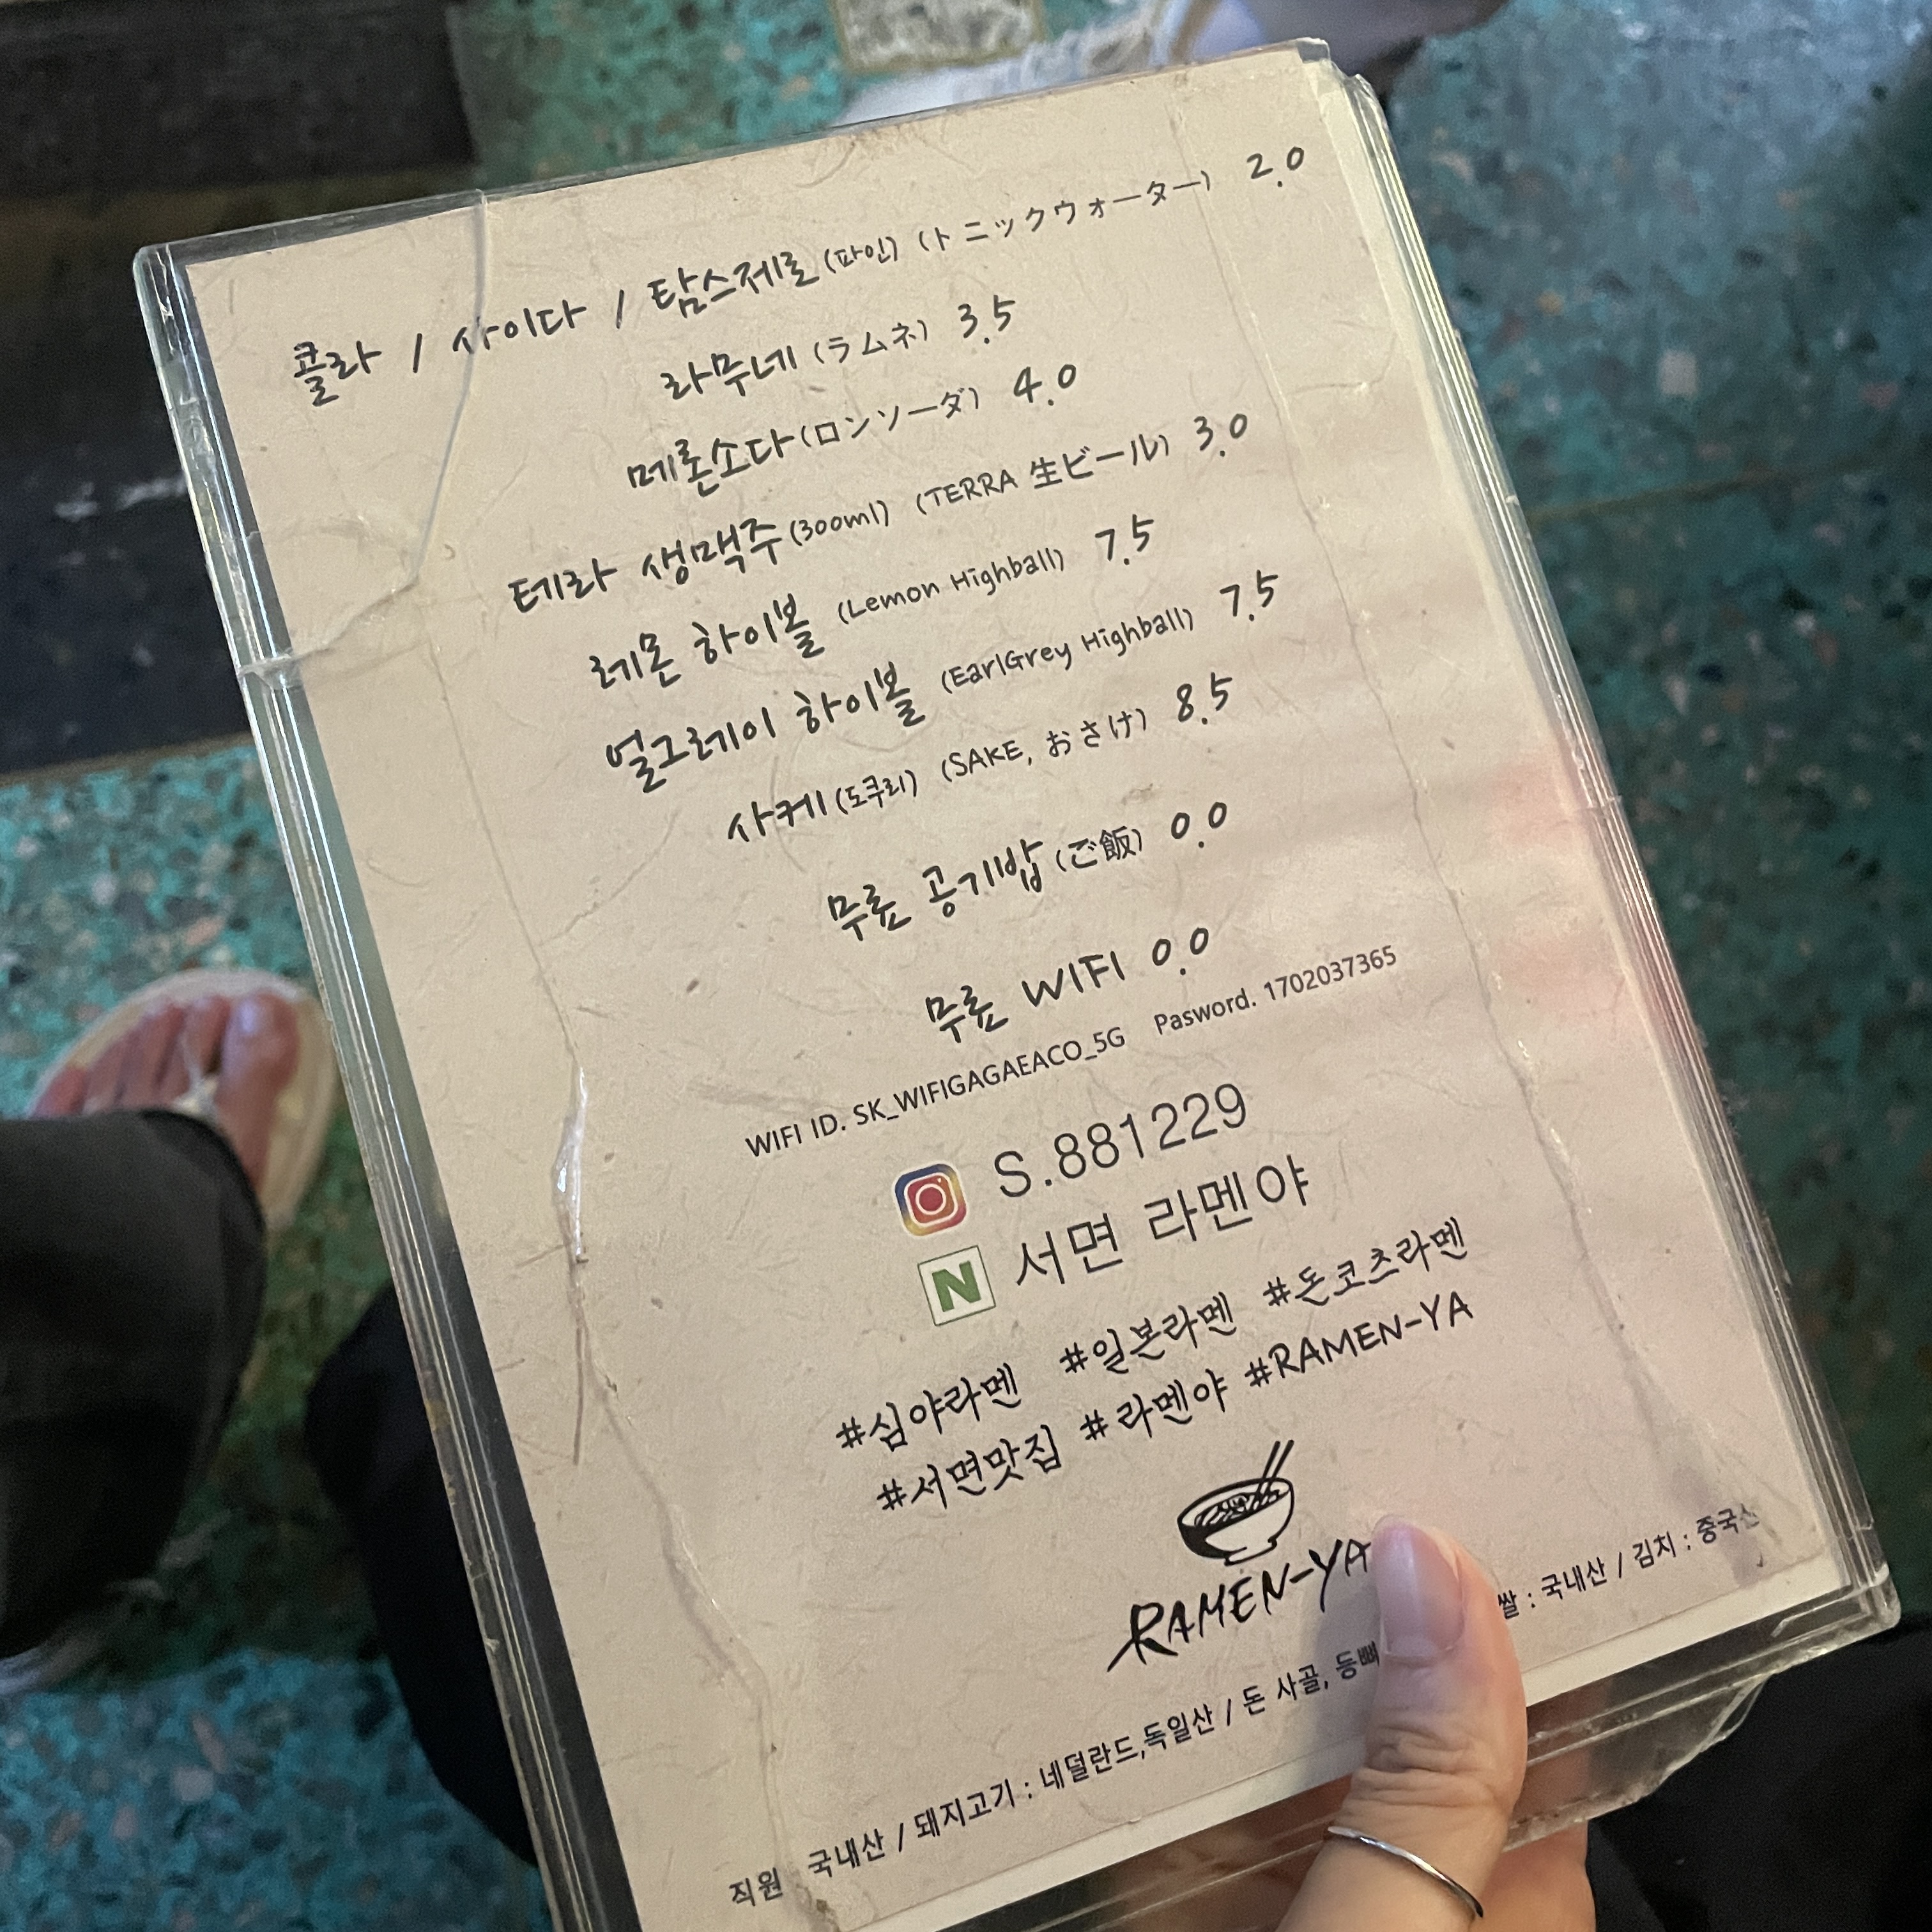 콜라 / 사이다 / 탐스제로(파인) (トニックウォーター) 2.0
라무네 (ラムネ) 3.5
메론소다(ロンソーダ) 4.0
테라 생맥주(300ml) (TERRA 生ビール) 3.0
레몬 하이볼 (Lemon Highball) 7.5
얼그레이 하이볼 (EarlGrey Highball) 7.5
사케(도쿠리) (SAKE, おさけ) 8.5
무료 공기밥(ご飯) 0.0
무료 WIFI 0.0
WIFI ID. SK_WIFIGAGAEACO_5G Pasword. 1702037365
S.881229
N 서면 라멘야
#심야라멘 #일본라멘 #돈코츠라멘
#서면맛집 #라멘야 #RAMEN-YA
RAMEN-YA
직원 국내산 / 돼지고기 : 네덜란드,독일산 / 돈 사골, 등뼈 쌀 : 국내산 / 김치 : 중국산